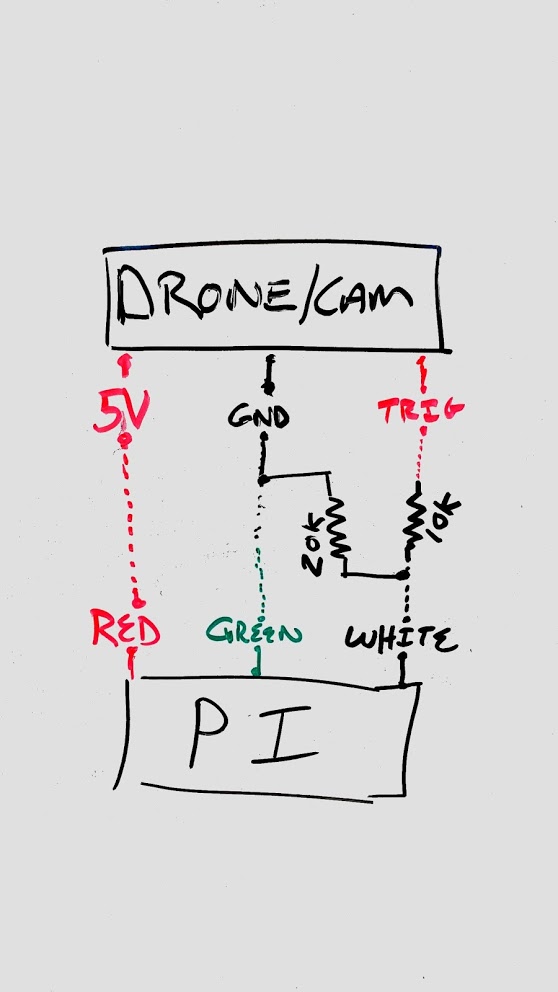 DRONE/CAM
5V GND TRIG
20K 10K
RED GREEN WHITE
PI